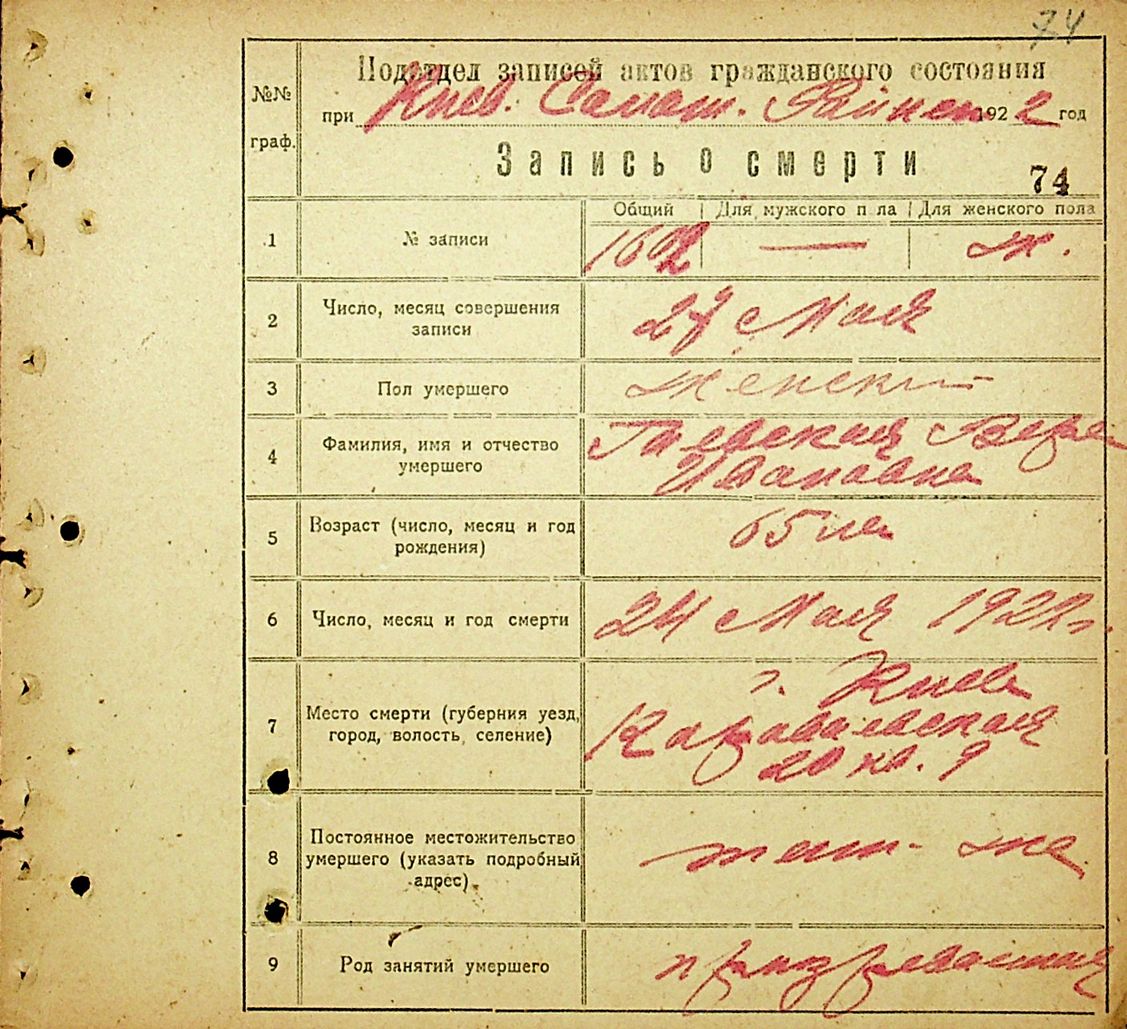 74
Подотдел записей актов гражданского состояния
№№ граф.
при Киев. 1922 год
Запись о смерти
74
Общий | Для мужского п ла | Для женского пола
1 № записи 1602 — ж.
2 Число, месяц совершения
записи
27 Мая
3 Пол умершего женский
4 Фамилия, имя и отчество
умершего
Вера
Ивановна
5 Возраст (число, месяц и год
рождения)
65 лет
6 Число, месяц и год смерти 24 Мая 1922 г.
7 Место смерти (губерния уезд,
город, волость, селение)
г. Киев
Караваевская
20 кв. 9
8 Постоянное местожительство
умершего (указать подробный
адрес)
там-же
9 Род занятий умершего призреваемая